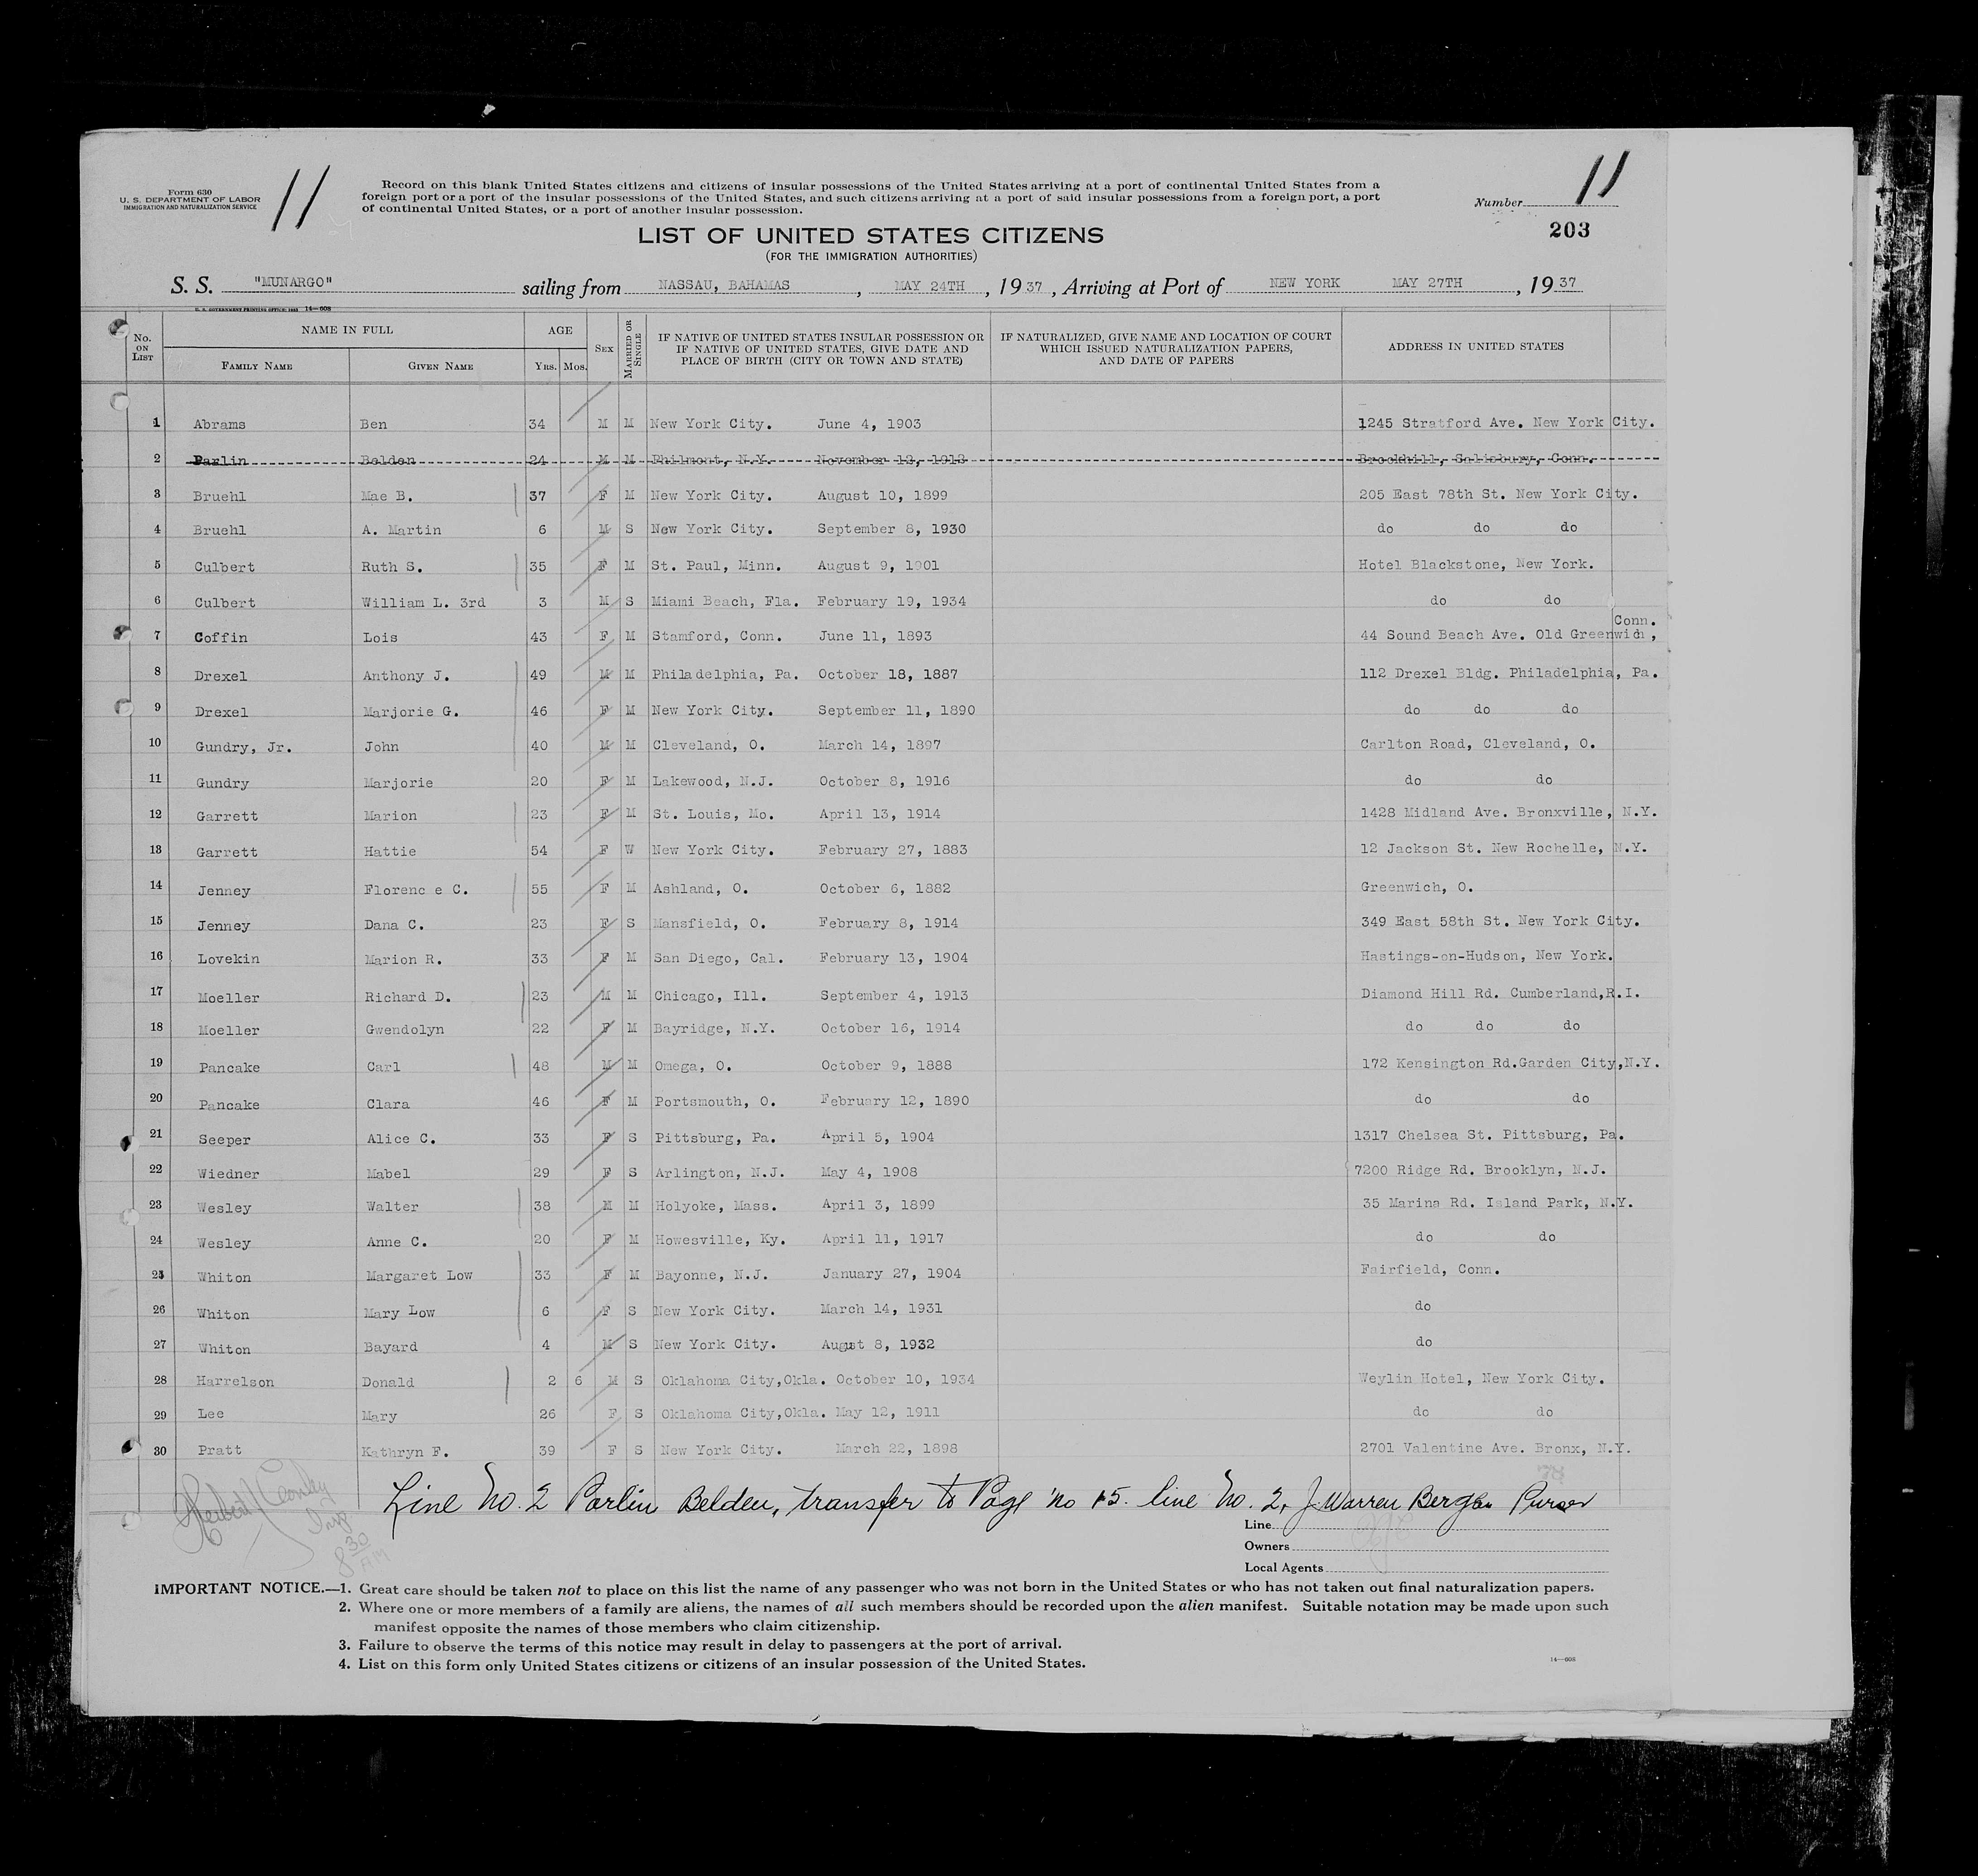 Form 630
U. S. DEPARTMENT OF LABOR
IMMIGRATION AND NATURALIZATION SERVICE
11
Record on this blank United States citizens and citizens of insular possessions of the United States arriving at a port of continental United States from a
foreign port or a port of the insular possessions of the United States, and such citizens arriving at a port of said insular possessions from a foreign port, a port
of continental United States, or a port of another insular possession.
Number 11
203
LIST OF UNITED STATES CITIZENS
(FOR THE IMMIGRATION AUTHORITIES)
S. S. "MUNARGO" sailing from NASSAU, BAHAMAS, MAY 24TH, 1937, Arriving at Port of NEW YORK MAY 27TH, 1937
U. S. GOVERNMENT PRINTING OFFICE: 1933 14—608
No. ON LIST NAME IN FULL FAMILY NAME GIVEN NAME AGE YRS. MOS. SEX MARRIED OR SINGLE IF NATIVE OF UNITED STATES INSULAR POSSESSION OR IF NATIVE OF UNITED STATES, GIVE DATE AND PLACE OF BIRTH (CITY OR TOWN AND STATE) IF NATURALIZED, GIVE NAME AND LOCATION OF COURT WHICH ISSUED NATURALIZATION PAPERS, AND DATE OF PAPERS ADDRESS IN UNITED STATES
1 Abrams Ben 34 M M New York City. June 4, 1903 1245 Stratford Ave. New York City.
2 Parlin Belden 24 M M Philmont, N.Y. November 12, 1912 Brockhill, Salisbury, Conn.
3 Bruehl Mae B. 37 F M New York City. August 10, 1899 205 East 78th St. New York City.
4 Bruehl A. Martin 6 M S New York City. September 8, 1930 do do do
5 Culbert Ruth S. 35 F M St. Paul, Minn. August 9, 1901 Hotel Blackstone, New York.
6 Culbert William L. 3rd 3 M S Miami Beach, Fla. February 19, 1934 do do
7 Coffin Lois 43 F M Stamford, Conn. June 11, 1893 44 Sound Beach Ave. Old Greenwich, Conn.
8 Drexel Anthony J. 49 M M Philadelphia, Pa. October 18, 1887 112 Drexel Bldg. Philadelphia, Pa.
9 Drexel Marjorie G. 46 F M New York City. September 11, 1890 do do do
10 Gundry, Jr. John 40 M M Cleveland, O. March 14, 1897 Carlton Road, Cleveland, O.
11 Gundry Marjorie 20 F M Lakewood, N.J. October 8, 1916 do do
12 Garrett Marion 23 F M St. Louis, Mo. April 13, 1914 1428 Midland Ave. Bronxville, N.Y.
13 Garrett Hattie 54 F W New York City. February 27, 1883 12 Jackson St. New Rochelle, N.Y.
14 Jenney Florenc e C. 55 F M Ashland, O. October 6, 1882 Greenwich, O.
15 Jenney Dana C. 23 F S Mansfield, O. February 8, 1914 349 East 58th St. New York City.
16 Lovekin Marion R. 33 F M San Diego, Cal. February 13, 1904 Hastings-on-Hudson, New York.
17 Moeller Richard D. 23 M M Chicago, Ill. September 4, 1913 Diamond Hill Rd. Cumberland,R.I.
18 Moeller Gwendolyn 22 F M Bayridge, N.Y. October 16, 1914 do do do
19 Pancake Carl 48 M M Omega, O. October 9, 1888 172 Kensington Rd.Garden City,N.Y.
20 Pancake Clara 46 F M Portsmouth, O. February 12, 1890 do do
21 Seeper Alice C. 33 F S Pittsburg, Pa. April 5, 1904 1317 Chelsea St. Pittsburg, Pa.
22 Wiedner Mabel 29 F S Arlington, N.J. May 4, 1908 7200 Ridge Rd. Brooklyn, N.J.
23 Wesley Walter 38 M M Holyoke, Mass. April 3, 1899 35 Marina Rd. Island Park, N.Y.
24 Wesley Anne C. 20 F M Howesville, Ky. April 11, 1917 do do
25 Whiton Margaret Low 33 F M Bayonne, N.J. January 27, 1904 Fairfield, Conn.
26 Whiton Mary Low 6 F S New York City. March 14, 1931 do
27 Whiton Bayard 4 M S New York City. August 8, 1932 do
28 Harrelson Donald 2 6 M S Oklahoma City,Okla. October 10, 1934 Weylin Hotel, New York City.
29 Lee Mary 26 F S Oklahoma City,Okla. May 12, 1911 do do
30 Pratt Kathryn F. 39 F S New York City. March 22, 1898 2701 Valentine Ave. Bronx, N.Y.
Line No. 2 Parlin Belden, transfer to Page no 15. line No. 2, J. Warren Bergen Purser
Insp
8 30
AM
Line
Owners
Local Agents
IMPORTANT NOTICE.—1. Great care should be taken not to place on this list the name of any passenger who was not born in the United States or who has not taken out final naturalization papers.
2. Where one or more members of a family are aliens, the names of all such members should be recorded upon the alien manifest. Suitable notation may be made upon such
manifest opposite the names of those members who claim citizenship.
3. Failure to observe the terms of this notice may result in delay to passengers at the port of arrival.
4. List on this form only United States citizens or citizens of an insular possession of the United States.
14—608